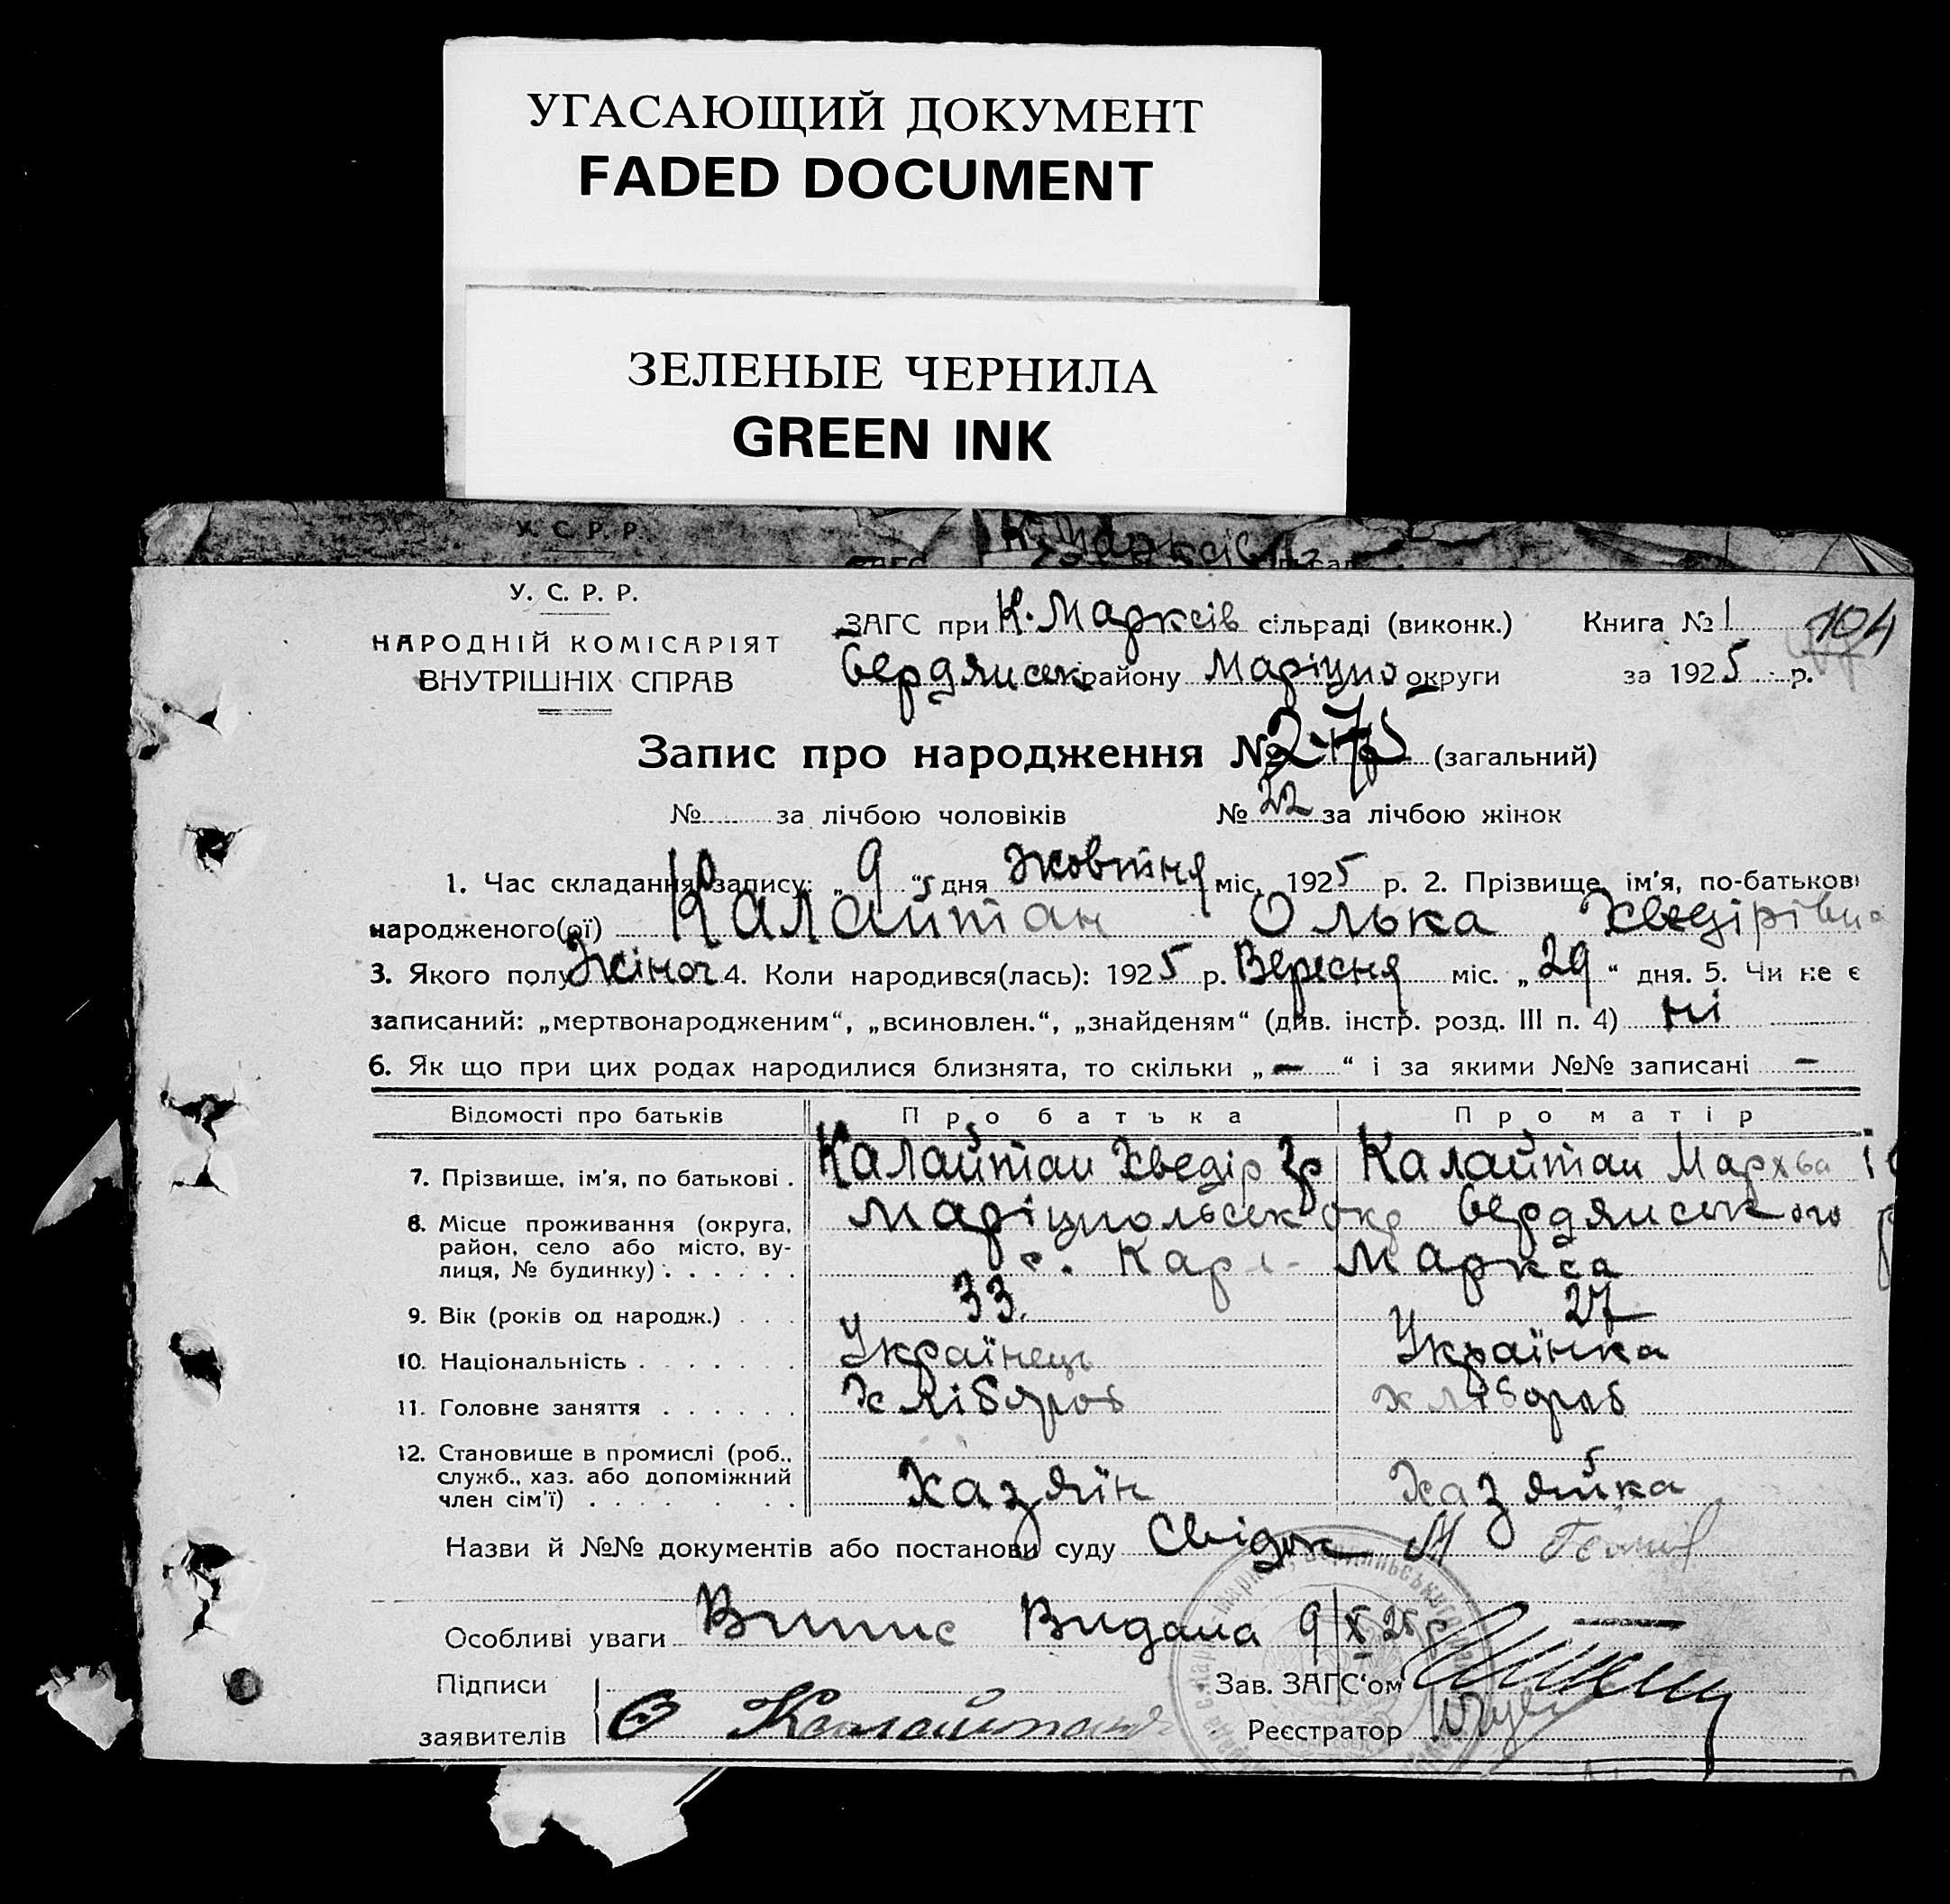 УГАСАЮЩИЙ ДОКУМЕНТ
FADED DOCUMENT
ЗЕЛЕНЫЕ ЧЕРНИЛА
GREEN INK
У. С. Р. Р.
У. С. Р. Р.
НАРОДНІЙ КОМІСАРІЯТ
ВНУТРІШНІХ СПРАВ
ЗАГС при К. Марксів сільраді (виконк.) Книга № 1 104
Бердянськ району Маріупо округи за 1925 р.
Запис про народження № 275 (загальний)
№ за лічбою чоловіків № 22 за лічбою жінок
1. Час складання запису: „ 9 “ дня Жовтня міс. 1925 р. 2. Прізвище, ім'я, по-батькові
народженого(ої) Калайтан Олька Хведірівна
3. Якого полу Жіноч 4. Коли народився(лась): 1925 р. Вересня міс. „ 29 “ дня. 5. Чи не є
записаний: „мертвонародженим“, „всиновлен.“, „знайденям“ (див. інстр. розд. III п. 4) ні
6. Як що при цих родах народилися близнята, то скільки „ — “ і за якими №№ записані —
Відомості про батьків Про батька Про матір
7. Прізвище, ім'я, по батькові . Калайтан Хведір Гр Калайтан Мархва
8. Місце проживання (округа, район, село або місто, ву- лиця, № будинку) . . . . . . Маріупольськ окр Бердянського р
с. Карл Маркса
9. Вік (років од народж.) . . . 33. 27
10. Національність . . . . . . . Українець Українка
11. Головне заняття . . . . . . хлібороб хлібороб
12. Становище в промислі (роб., служб., хаз. або допоміжний член сім'ї) . . . . . . . . Хазяїн Хазяйка
Назви й №№ документів або постанови суду Свідок М
Особливі уваги Випис Видана 9/X 25 р
Підписи Зав. ЗАГС'ом
заявителів Калайтан Реєстратор